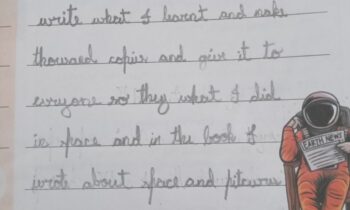 write what I learnt and make
thousand copies and give it to
everyone so they what I did
in space and in the book I
wrote about space and pitcurus
EARTH NEWS